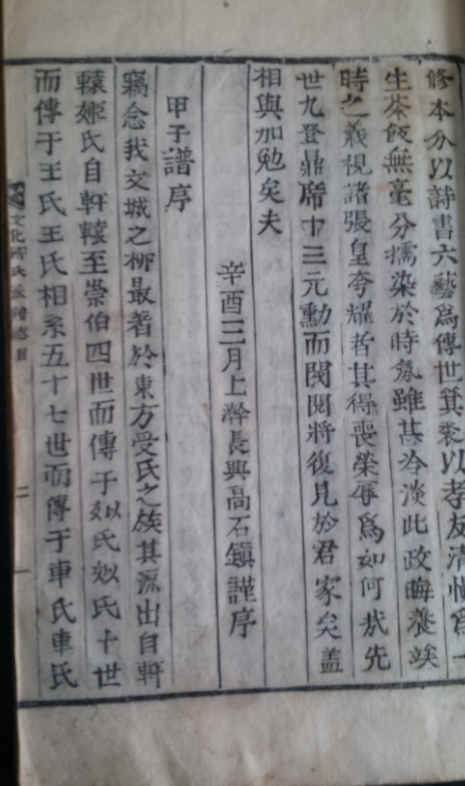 修本分以詩書六藝爲傳世箕裘以孝友清愼爲一
生茶飯無毫分擩染於時氛雖甚冷淡此政晦養竢
時之義視諸張皇夸耀者其得喪榮辱爲如何哉先
世九登鼎席廿三元勳而閥閱將復見於君家矣盖
相與加勉矣夫
辛酉三月上澣長興高石鎭謹序
甲子譜序
竊念我文城之柳最著於東方受氏之族其源出自軒
轅姬氏自軒轅至崇伯四世而傳于姒氏姒氏十世
而傳于王氏王氏相系五十七世而傳于車氏車氏
文化柳氏派譜
二